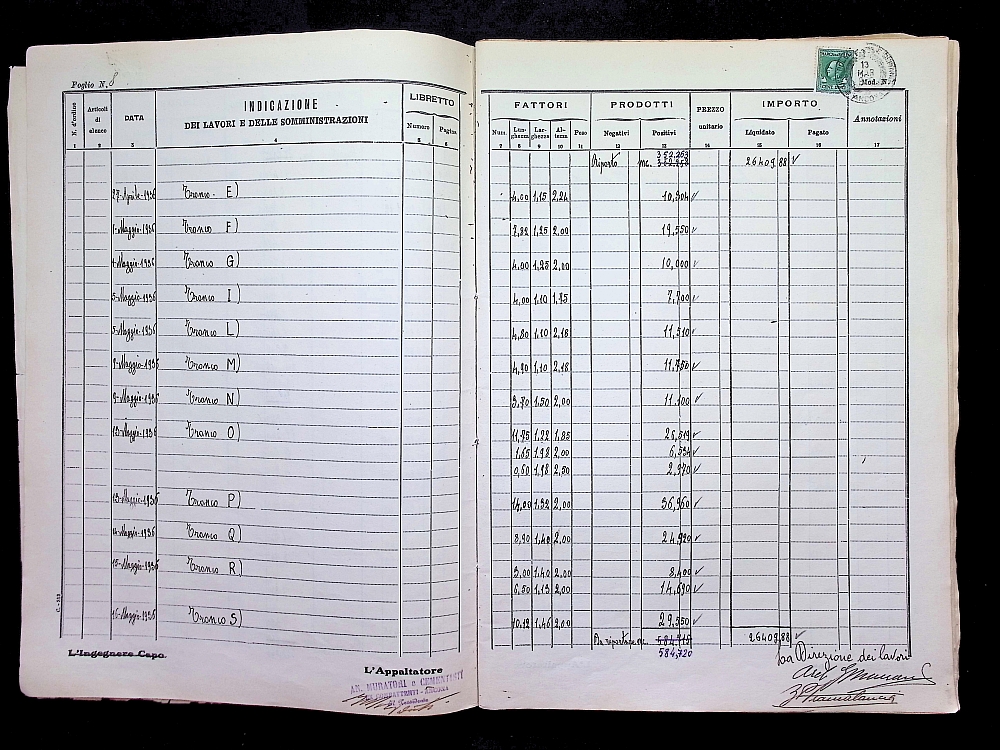 Foglio N. 8
N. d'ordine
Articoli di elenco
DATA
INDICAZIONE
DEI LAVORI E DELLE SOMMINISTRAZIONI
LIBRETTO
Numero
Pagina
1 2 3 4 5 6
27-Aprile-1936 Tronco E)
1-Maggio-1936 Tronco F)
4-Maggio-1936 Tronco G)
5-Maggio-1936 Tronco I)
5-Maggio-1936 Tronco L)
Maggio-1936 Tronco M)
9-Maggio-1936 Tronco N)
Maggio-1936 Tronco O)
13-Maggio-1936 Tronco P)
14-Maggio-1936 Tronco Q)
15-Maggio-1936 Tronco R)
16-Maggio-1936 Tronco S)
L'Ingegnere Capo
L'Appaltatore
AN. MURATORI e CEMENTISTI
Mod. N.
FATTORI
PRODOTTI
PREZZO unitario
IMPORTO
Annotazioni
Num. Lunghezza Larghezza Altezza Peso Negativi Positivi Liquidato Pagato
7 8 9 10 11 12 13 14 15 16 17
Riporto mc. 352,263 26409,88
4,00 1,15 2,24 10,304
7,82 1,25 2,00 19,550
4,00 1,25 2,00 10,000
4,00 1,10 1,75 7,700
4,80 1,10 2,18 11,510
4,90 1,10 2,18 11,750
3,70 1,50 2,00 11,100
11,75 1,22 1,85 26,519
1,65 1,98 2,00 6,534
0,60 1,98 2,50 2,970
14,00 1,32 2,00 36,960
8,90 1,40 2,00 24,920
3,00 1,40 2,00 8,400
6,50 1,13 2,00 14,690
10,12 1,46 2,00 29,550
Da riportare mc. 584,715 26409,88
584,720
La Direzione dei lavori